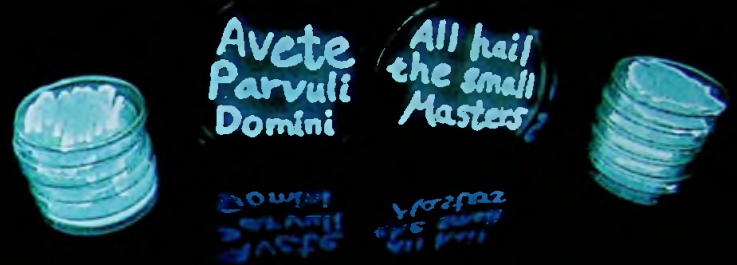 Avete
Parvuli
Domini
All hail
the small
Masters